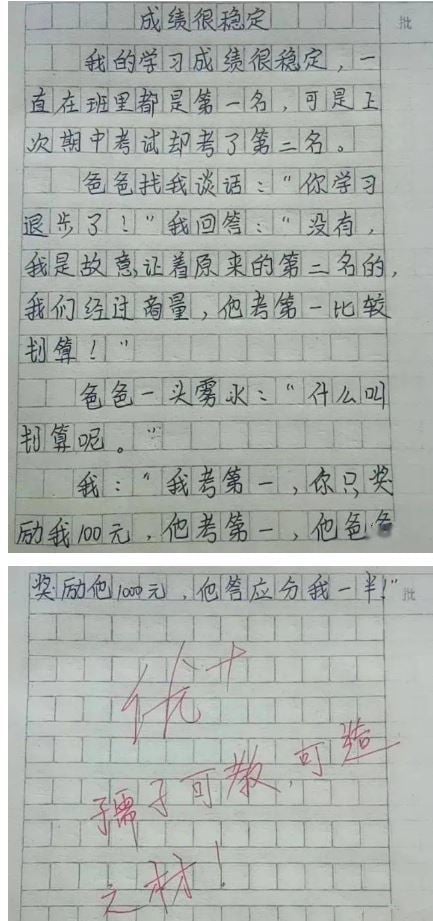 成绩很稳定
批
我的学习成绩很稳定，一
直在班里都是第一名，可是上
次期中考试却考了第二名。
爸爸找我谈话：“你学习
退步了！”我回答：“没有，
我是故意让着原来的第二名的，
我们经过商量，他考第一比较
划算！”
爸爸一头雾水：“什么叫
划算呢。”
我：“我考第一，你只奖
励我100元，他考第一，他爸爸
奖励他1000元，他答应分我一半！”
批
优+
孺子可教，可造
之材！